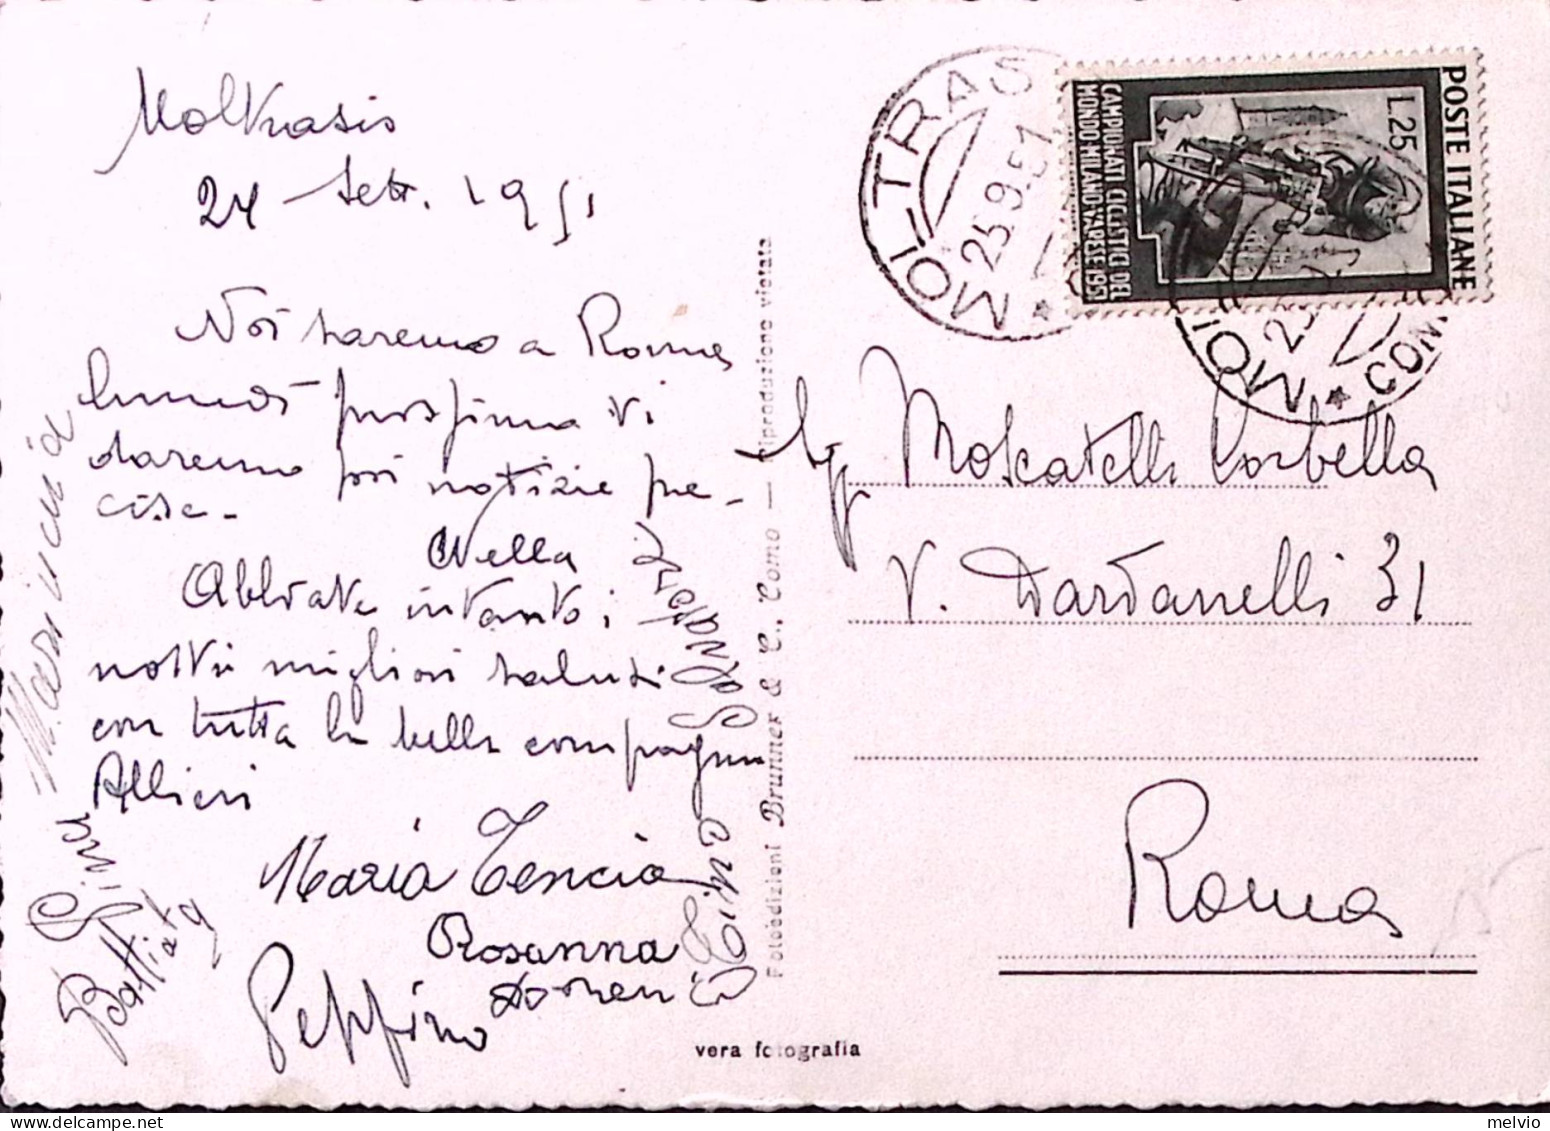 Moltrasio
24 Sett. 1951
Noi saremo a Roma
lunedì prossimo vi
daremo poi notizie pre-
cise.
Nella
Abbiate intanto i
nostri migliori saluti
con tutta la bella compagnia
Allieri
Maria Tencia
Rosanna
Peppino
Marinuccia
Gina
Battista
Salvatore
Gina
Fotoedizioni Brunner & C., Como — Riproduzione vietata
vera fotografia
MOLTRAS
25.9.51
MOL
COM
POSTE ITALIANE
L.25
CAMPIONATI CICLISTICI DEL
MONDO·MILANO·VARESE·1951
Moscatelli Corbella
V. Dardanelli 31
Roma
melvio